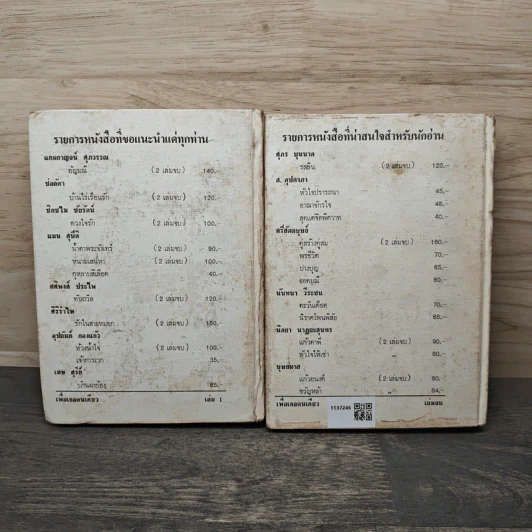 รายการหนังสือที่ขอแนะนำแด่ทุกท่าน
แถมกาญจน์ ศุภวรรณ
อัญมณี (2 เล่มจบ) 140.-
ชลลดา
บ้านไร่เรือนรัก (2 เล่มจบ) 120.-
ชิดชไม ชัยรัตน์
ดวงใจรัก (2 เล่มจบ) 100.-
แมน สุนีติ
น้ำตาพระจันทร์ (2 เล่มจบ) 90.-
หนามเสน่หา (2 เล่มจบ) 100.-
กุหลาบสีเลือด 40.-
ศศิพงส์ ประไพ
ทับถวิล (2 เล่มจบ) 120.-
ศิริรำไพ
รักในสายหมอก (2 เล่มจบ) 150.-
อุปถัมภ์ กองแก้ว
ห้วงน้ำใจ (2 เล่มจบ) 100.-
เจ้าการเวก 35.-
เทพ สุริย์
บ้านนกยูง 65.-
เพื่อเธอคนเดียว เล่ม 1
รายการหนังสือที่น่าสนใจสำหรับนักอ่าน
ศุภร บุนนาค
รสลิน (2 เล่มจบ) 120.-
ส. คุปตาภา
หัวใจปรารถนา 45.-
อาณาจักรใจ 48.-
สุดแต่จิตพิศวาท 40.-
ตรีอัตถบุษย์
คู่สร้างคู่สม (2 เล่มจบ) 160.-
พรชีวิต 70.-
ปางบุญ 65.-
ยอดมณี 80.-
นันทนา วีระชน
ตะวันเดือด 70.-
นิราศโพนพิสัย 65.-
นิตยา นาฏยะสุนทร
แก้วตาพี่ (2 เล่มจบ) 90.-
หัวใจให้เช่า ,, 80.-
บุษยมาส
แก้วอนงค์ (2 เล่มจบ) 90.-
ขวัญหล้า ,, 84.-
เพื่อเธอคนเดียว เล่มจบ
1137245